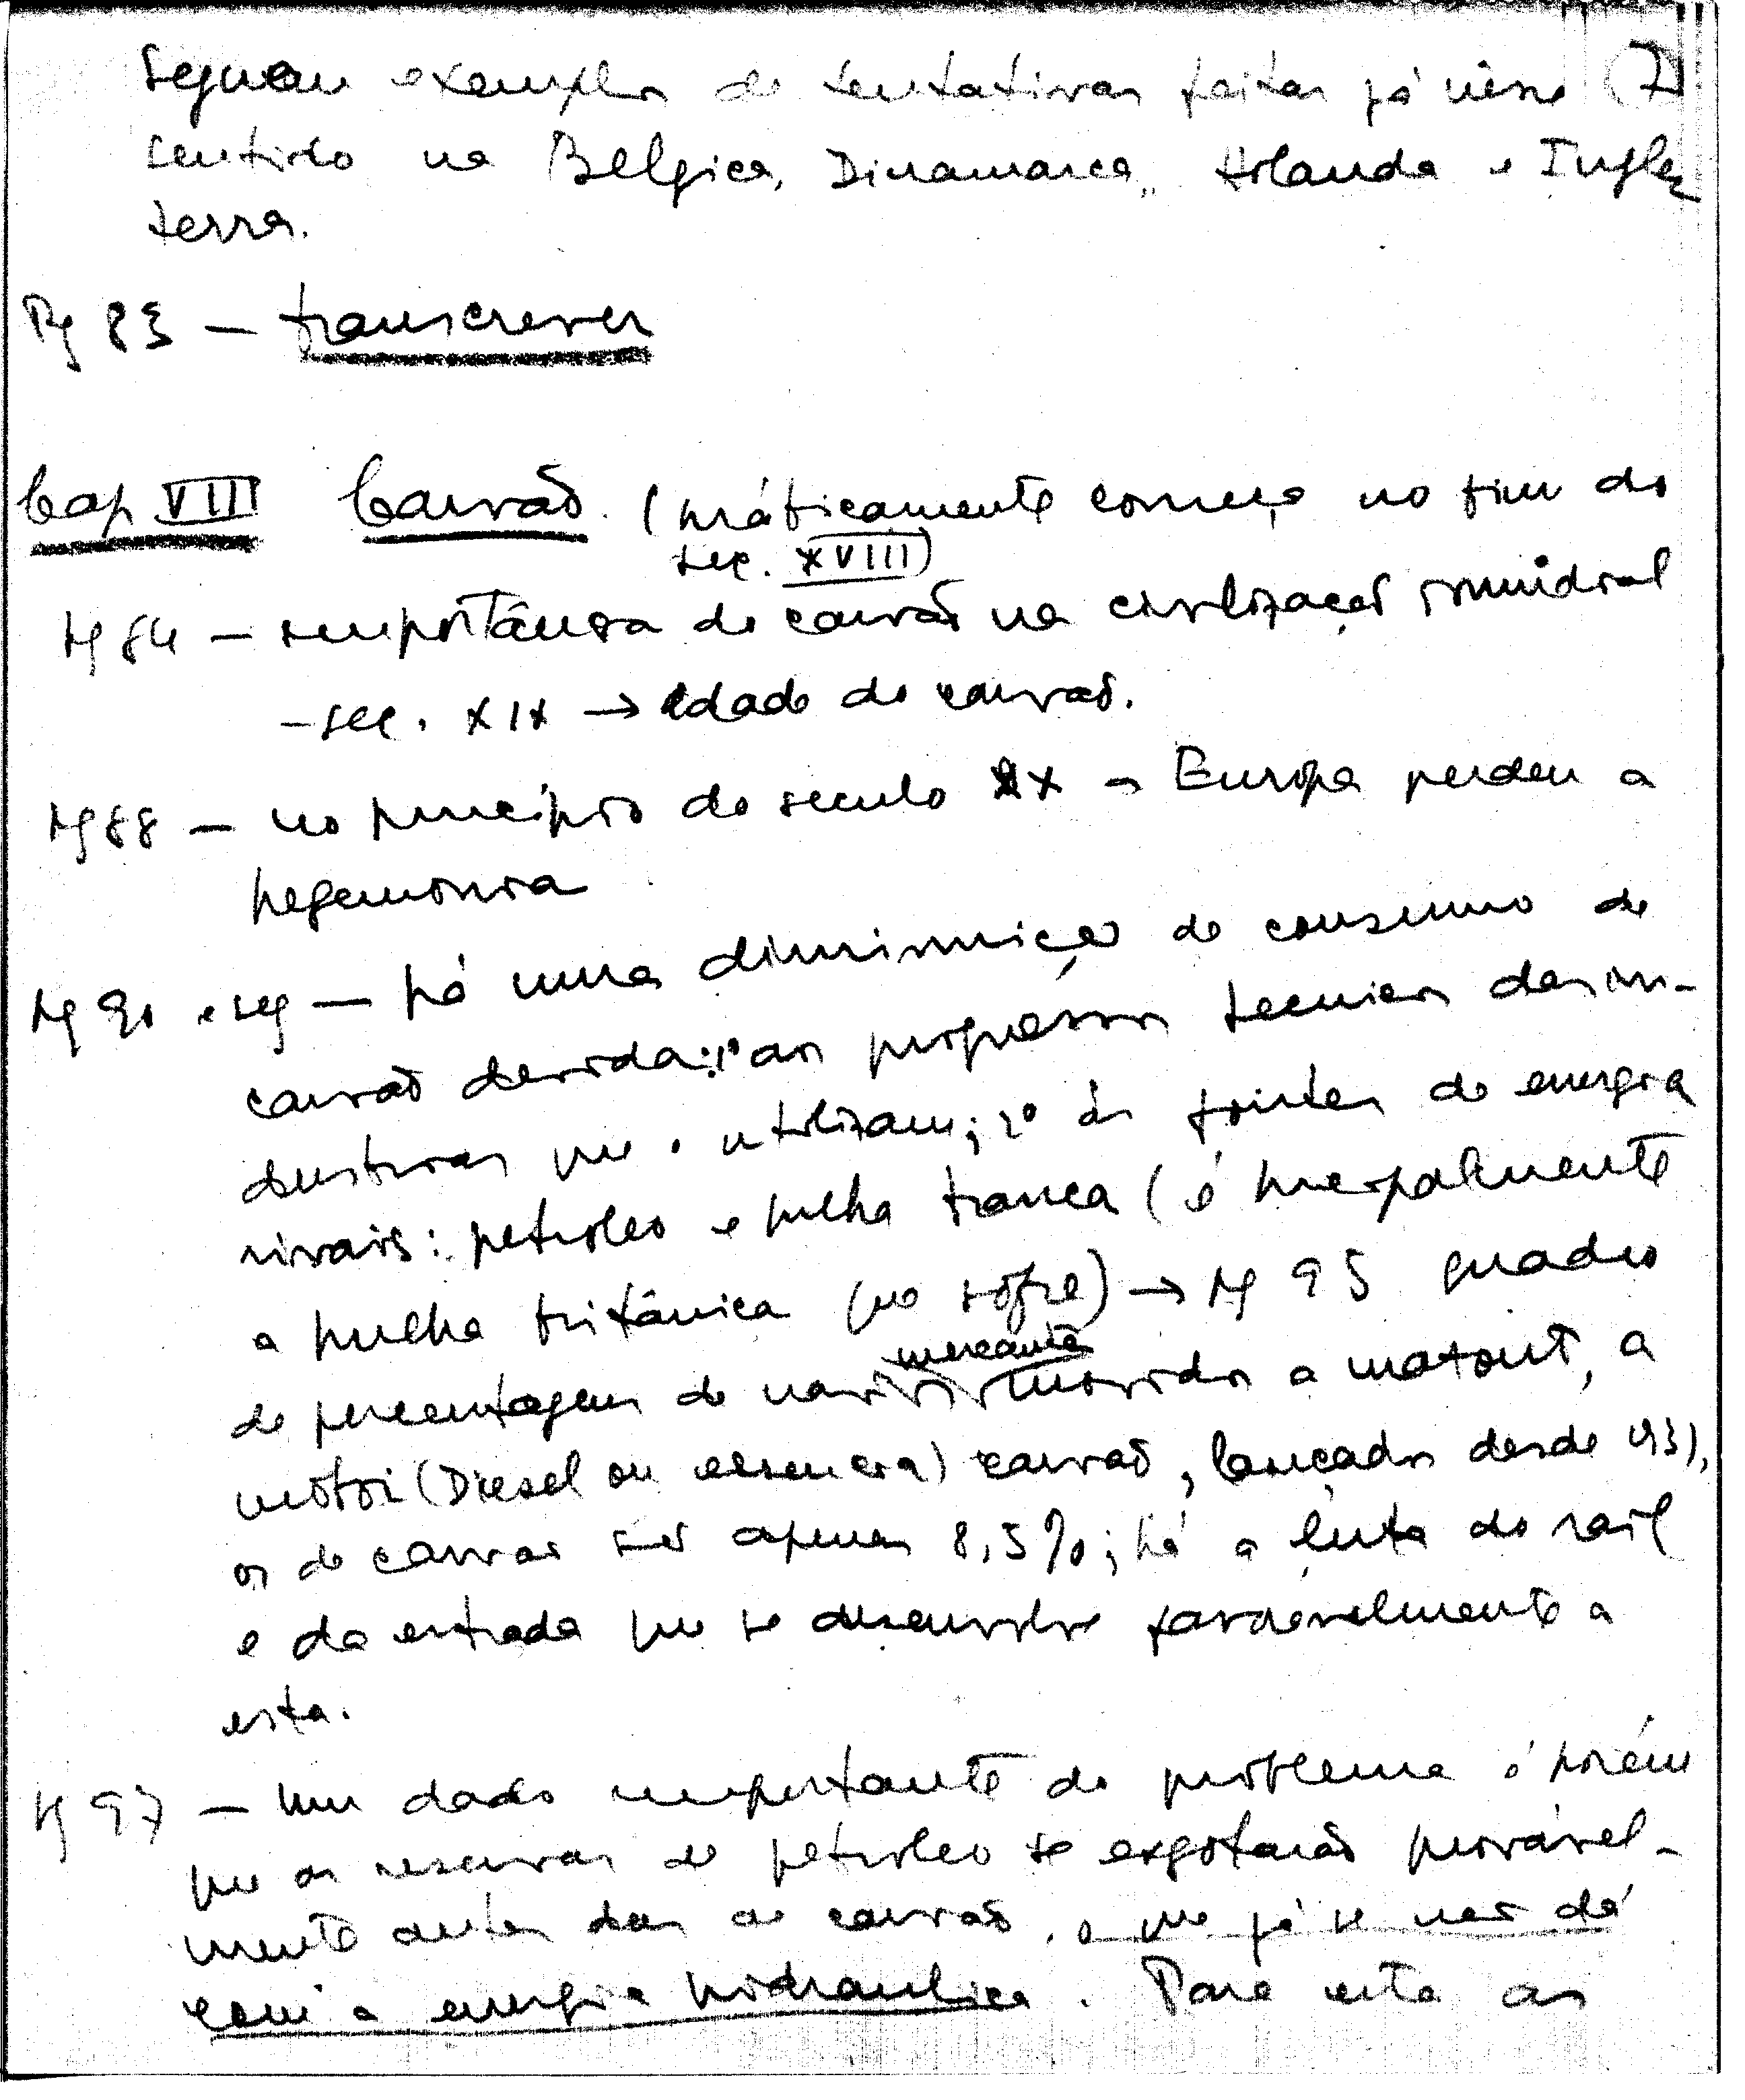 Seguem exemplos de tentativas feitas já nêsse (7)
sentido na Belgica, Dinamarca, Holanda e Ingla
terra.
Pg 83 — transcrever
Cap VIII Carvão. (práticamente começa no fim do
sec. XVIII)
Pg 84 — importância do carvão na civilização mundial
- sec. XIX → idade do carvão.
Pg 88 — no princípio do seculo XX → Europa perdeu a
hegemonia
Pg 90 e seg — há uma diminuição do consumo de
carvão devida: 1º aos progressos tecnicos das in-
dustrias que o utilizam; 2º às fontes de energia
rivais: petroleo e hulha branca (é principalmente
a hulha britânica que sofre) → Pg 95 quadro
de percentagem de navios mercante movidos a mazout, a
motor (Diesel ou essencia) carvão, lançados desde 193),
os de carvão são apenas 8,5%; há a luta do rail
e da estrada que se desenvolve favoravelmente a
esta.
Pg 97 — Um dado importante do problema é porém
que as reservas de petroleo se esgotarão provável-
mente antes das de carvão, o que já se não dá
com a energia hidraulica. Para esta as